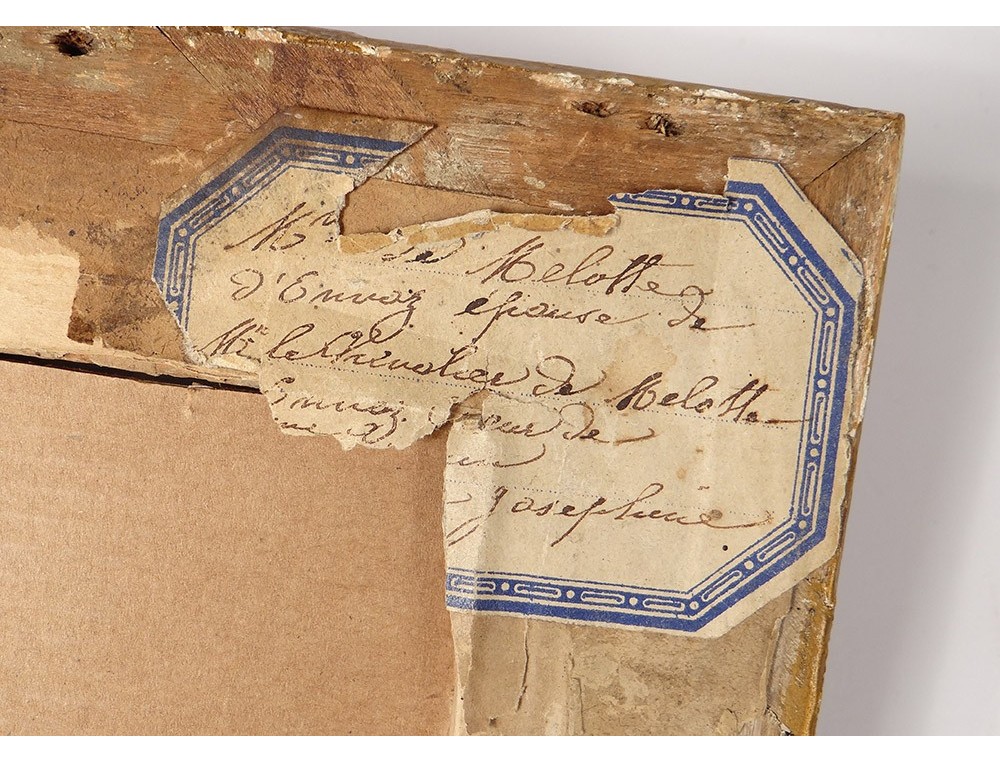 Mme de Melotte
d'Envoz épouse de
Mr le Chevalier de Melotte
Envoz sœur de
Josephine